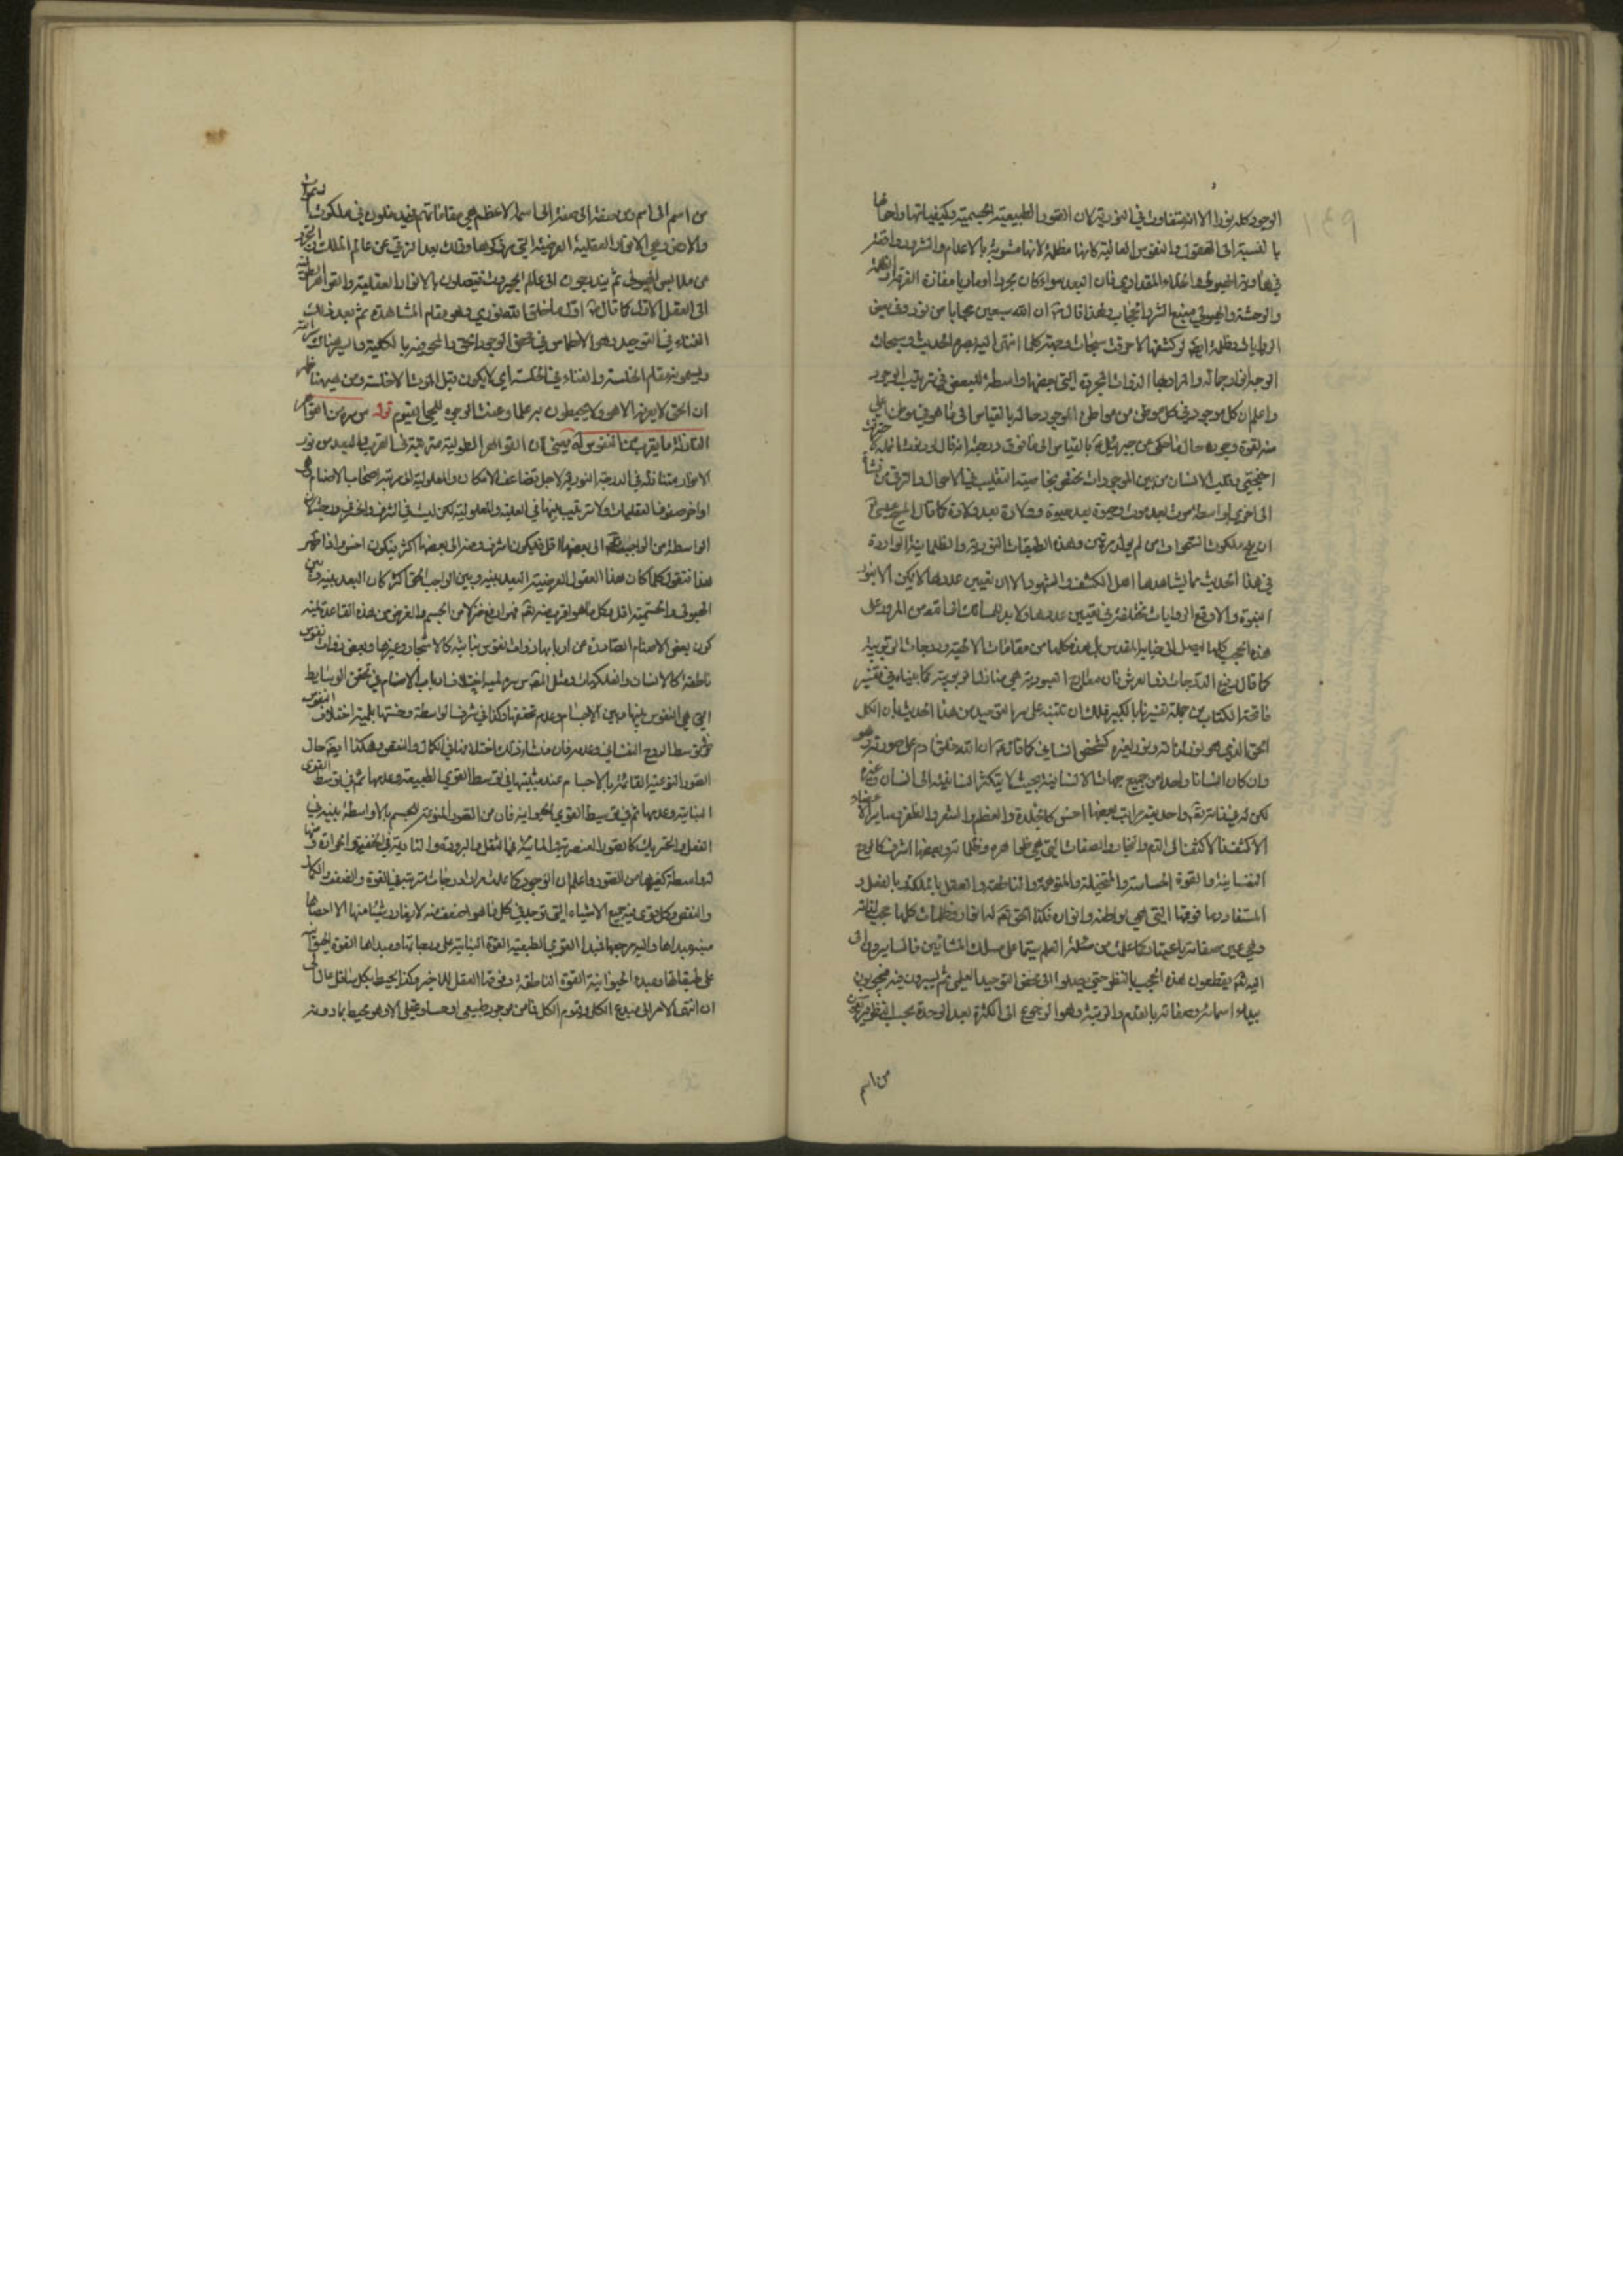 الوجود كله نور الا انه متفاوت في النورية لان الصور الطبيعية الجسمية وكيفياتها واحجامها
بالنسبة الى العقول والنفوس العالية كانها مظلمة لانها مشوبة بالاعدام والشرور واقعة
في هاوية الهيولى
والوحشة والهيولى منبع الشر والحجاب ولهذا قال ان الله سبعين حجابا من نور وفي بعض
الروايات وظلمة ايضا لو كشفها لاحرقت سبحات وجهه كلما انتهى اليه بصره الحديث وسبحات
الوجه انوار جماله والمراد بها الذوات المجردة التي بعضها واسطة للبعض في ترتيب الوجود
واعلم ان كل موجود في كل موطن من مواطن الوجود حاله بالقياس الى ما هو في موطن اعلى
منه لقوة وجوده حال ما حكى عن جبرئيل بالقياس الى ما فوق درجته انه قال لو دنوت انملة لاحترقت
اجنحتي وقلب الانسان من بين الموجودات مختص بخاصية التقليب في الاحوال والترقي من نشأة
الى اخرى بواسطة موت بعد موت وحيوة بعد حيوة وولادة بعد ولادة كما قال المسيح عيسى
ان يلج ملكوت السموات من لم يولد مرتين وهذه الطبقات النورية والظلمانية الواردة
في هذا الحديث مما يشاهدها اهل الكشف والشهود الا ان تعيين عددها لا يمكن الا بنور
النبوة والاوقع الروايات مختلفة في تعيين عددها ولا بد للسالك الى الله من المرور على
هذه الحجب كلها ليصل الى جناب القدس
كما قال رفيع الدرجات ذو العرش فان معارج العبودية هي منازل الربوبية كما بيناه في تفسير
فاتحة الكتاب من جملة تفسيرنا الكبير فلك ان تتنبه على سر التوحيد من هذا الحديث بان الكل
الحق الذي هو نور لذاته ونور لغيره كشخص انساني كما قال ان الله خلق ادم على صورته وهو
وان كان انسانا واحدا من جميع جهات الانسانية بحيث لا يتكثر انسانيته الى انسان وغيره
لكن له في ذاته تعالى واحدية مراتب بعضها اخس كالجلدة والعظم والشعر والظفر وساير الاعضاء
الاكثف فالاكثف الى الدم والبخار والصفات التي هي ظواهره وظلماته وبعضها اشرف كالروح
النفسانية والقوة الحساسة والمتخيلة والمتوهمة والناطقة والعقل بالملكة وبالفعل و
المستفاد وما فوقها التي هي بواطنه وانواره فكذا الحق تعالى له انوار وظلمات كلها حجب لذاته
وهي عين صفاته باعتبار كما علمت من مسئلة العلم سيما على مسلك المشائين فالسايرون الى
الله تعالى يقطعون هذه الحجب بالنظر حتى يصلوا الى محض التوحيد العلمي ثم يسيرون فيه فيجدون
بهاء اسمائه وصفاته بالعلم والرؤية وهو الرجوع الى الكثرة بعد الوحدة بحسب النظر فيترقون
من اسم
من اسم الى اسم ومن صفة الى صفة الى اسمه الاعظم هي مقاماتهم فيدخلون في ملكوت السموات
والارض وهي الانوار العقلية العرضية وذلك بعد الترقي عن عالم الملك والتجرد
عن ملابس الهيولى ثم يندرجون الى عالم الجبروت فيتصلون بالانوار العقلية والقواهر العلوية
الى العقل الاول كما قال اول ما خلق الله نوري وهو مقام المشاهدة ثم بعد ذلك
الفناء في التوحيد وهو الانطماس في محض الوجود الحق والمحو فيه بالكلية
ان الحق لا يعرفه الا هو ولا يحيطون به علما وعنت الوجوه للحي القيوم قوله س سره من القواهر
النازلة ما يقرب من النفوس آه يعني ان القواهر الطولية مترتبة في القرب والبعد من نور
الانوار متنازلة في الدرجة النورية لاجل تضاعف الامكان والمعلولية الى مرتبة اصحاب الاصنام
اواخر صفوف العقليات ولا ترتيب بينها في العلية والمعلولية لكن ليست في الشرف والخسة درجة لان
الواسطة من الواجب تعالى الى بعضها اقل فيكون اشرف ومنه الى بعضها اكثر فيكون اخس واذا ظهر
هذا فنقول كلما كان هذا العقول العرضية البعد بينه وبين الواجب الحق اكثر كان البعد بينه وبين
الهيولى والجسمية اقل وكل ما هو اقرب منه تعالى فهو ارفع منزلا من الجسم والغرض من هذه القاعدة لمية
كون بعض الاصنام الصادرة عن اربابها ذوات نفوس نباتية كالاشجار وغيرها وبعض ذوات نفوس
ناطقة كالانسان والفلكيات
التي هي النفوس بينها وبين الاجسام وعدم تحققها وكذا في شرف الواسطة وخستها بلمية اختلاف النفوس
في توسط الروح النفساني وعدمه فان منشأ ذلك اختلافها في الكمال والنقص وهكذا ايضا حال
الصور النوعية القائمة بالاجسام عند مثبتيها في توسط القوى الطبيعية وعدمها ثم في توسط القوى
النباتية وعدمها ثم في توسط القوى الحيوانية فان من الصور المنوعة للجسم بلا واسطة بينه في
الفعل والتحريك كالصور العنصرية المائية في الثقل والبرودة والنارية في الخفة والحرارة ومنها
له واسطة كغيرها من الصور واعلم ان الوجود كما علمت مرارا درجات مترتبة في القوة والضعف والكمال
والنقص وكل قوي فيه جميع الاشياء التي توجد في كل ما هو اضعف منه لا يغادر شيئا منها الا احصاها
مبدؤها واليه مرجعها فمبدأ القوى الطبيعية القوة النباتية على درجاتها ومبدأها القوة الحيوانية
على طبقاتها ومبدء الحيوانية القوة الناطقة وفوقها العقل الاخير وكذا يحيط بكل سافل عال الى
ان انتهى الامر الى مبدع الكل وقيوم الكل فما من موجود طبيعي او حسي او عقلي الا وهو محيط بما دونه